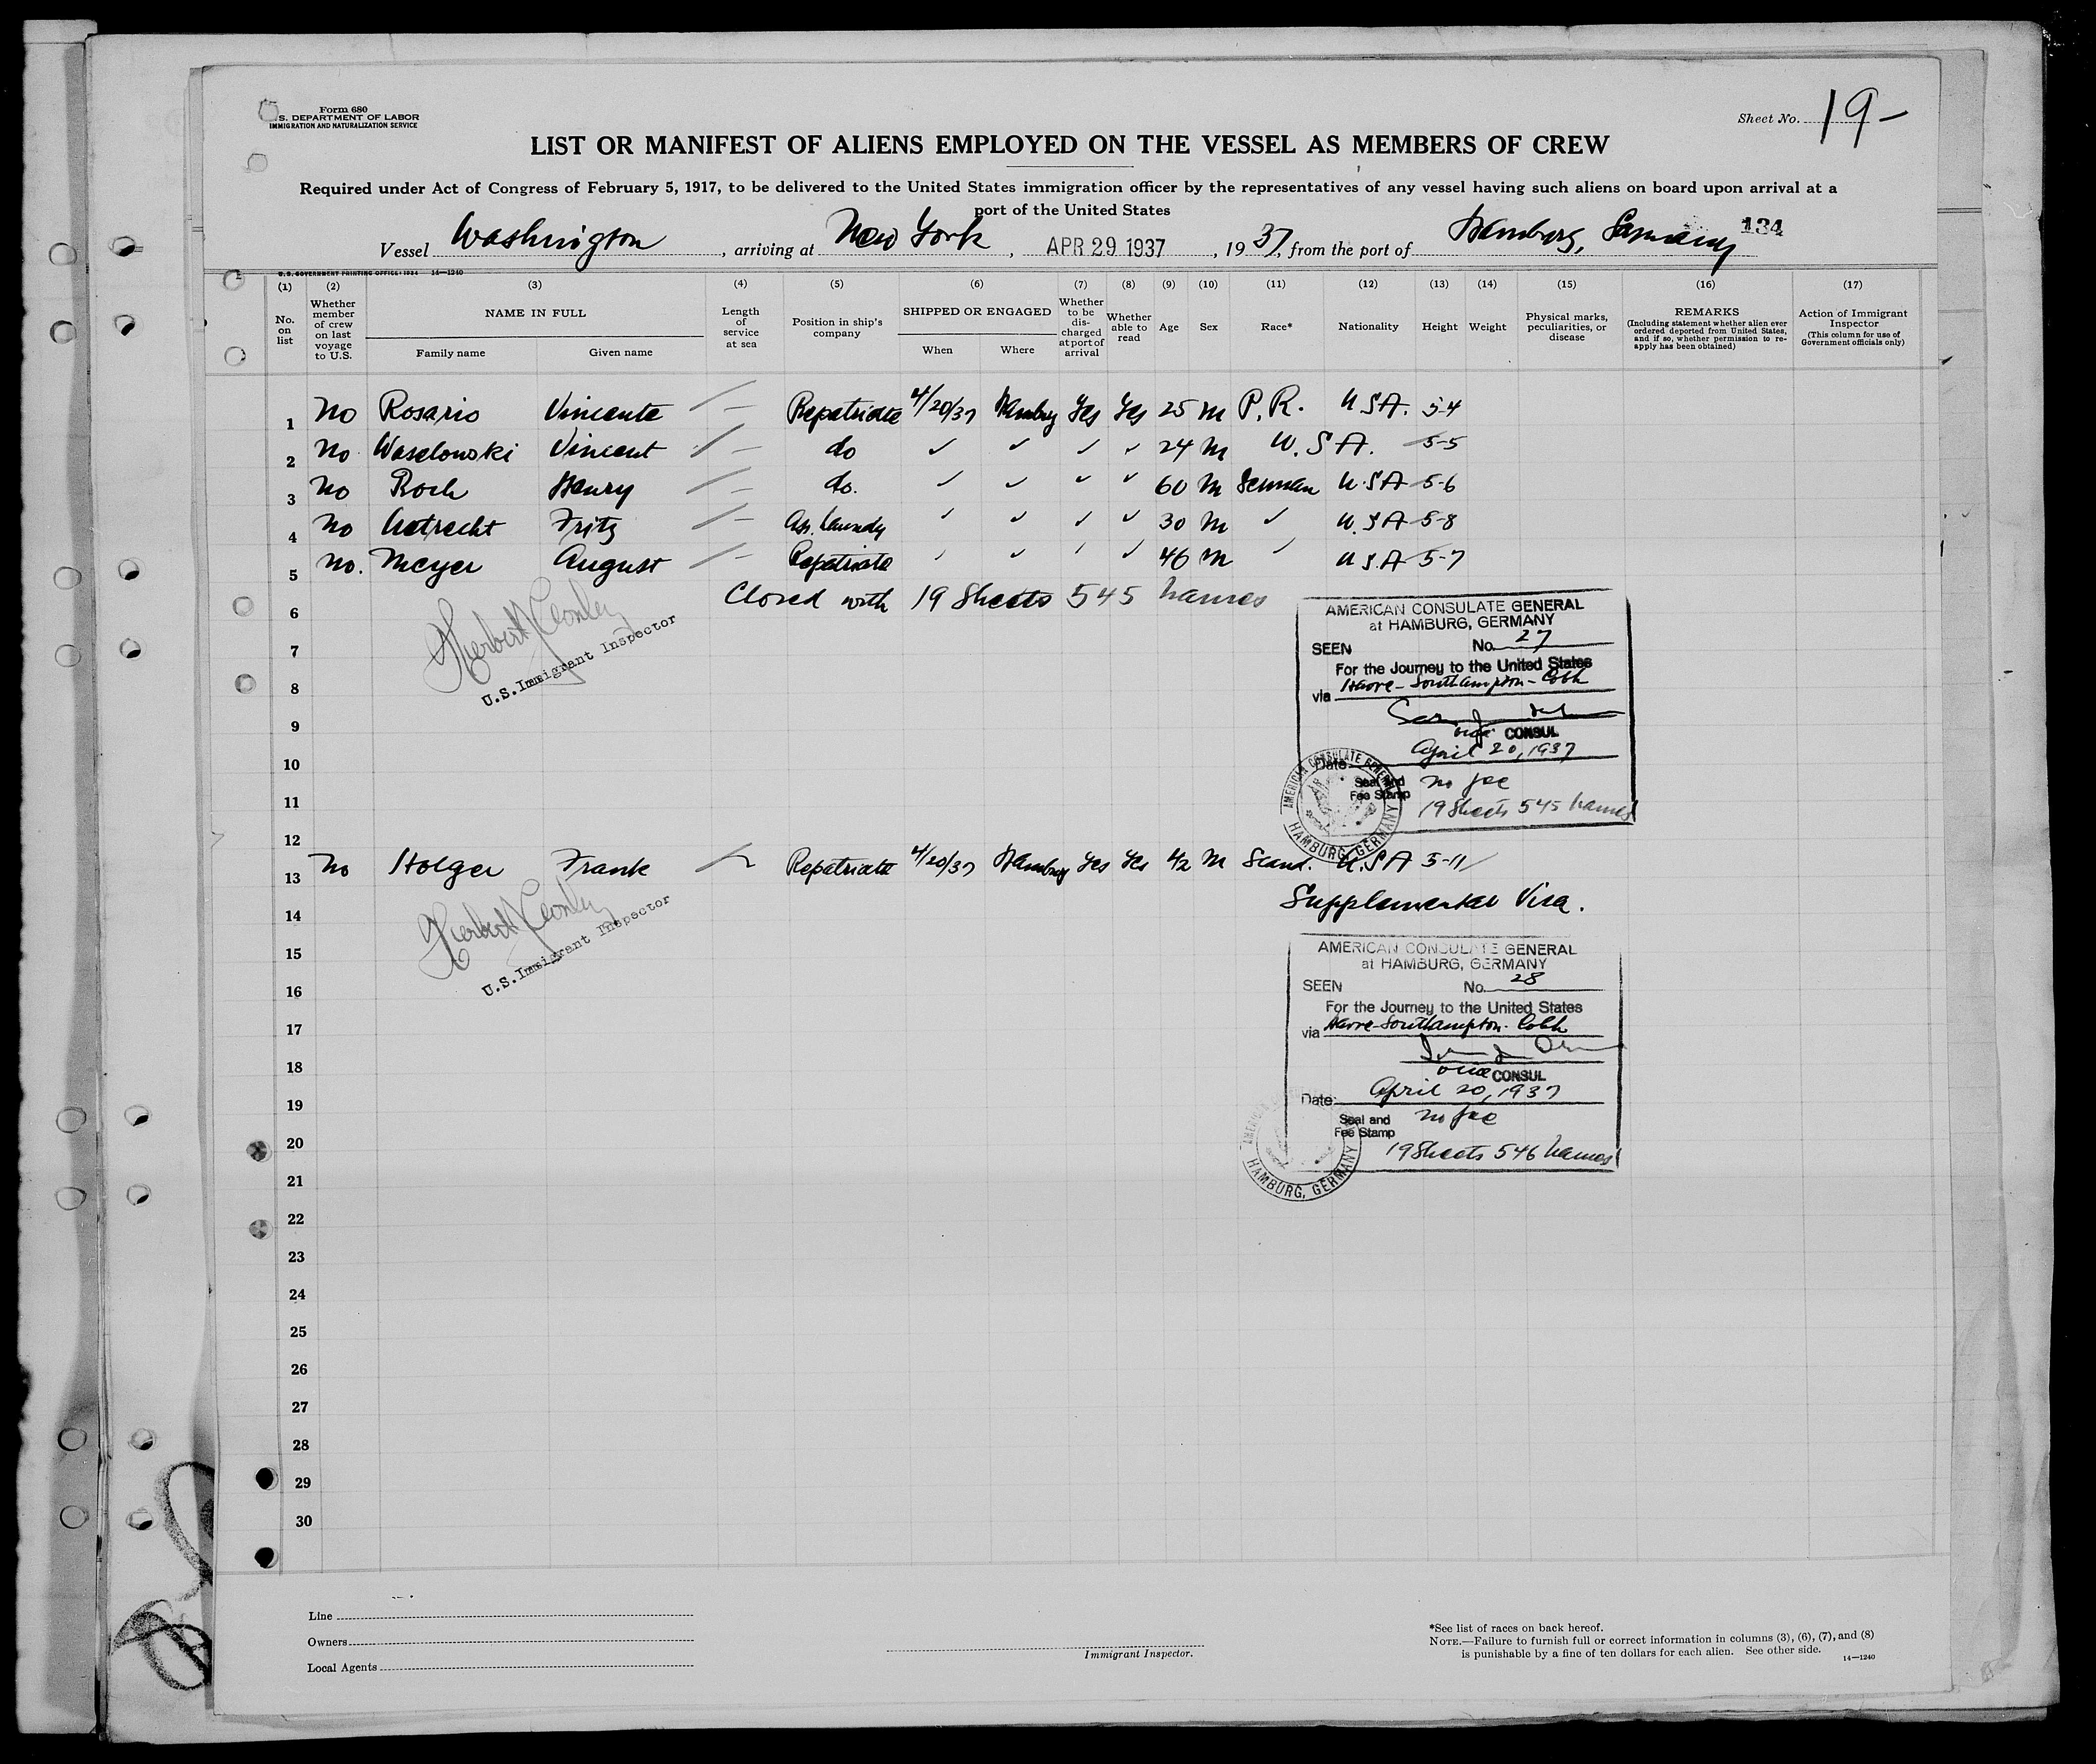 Form 680
U.S. DEPARTMENT OF LABOR
IMMIGRATION AND NATURALIZATION SERVICE
Sheet No. 19-
LIST OR MANIFEST OF ALIENS EMPLOYED ON THE VESSEL AS MEMBERS OF CREW
Required under Act of Congress of February 5, 1917, to be delivered to the United States immigration officer by the representatives of any vessel having such aliens on board upon arrival at a
port of the United States
134
Vessel Washington, arriving at New York, APR 29 1937, 1937, from the port of Hamburg, Germany
U.S. GOVERNMENT PRINTING OFFICE: 1934 14—1240
(1) (2) (3) (4) (5) (6) (7) (8) (9) (10) (11) (12) (13) (14) (15) (16) (17)
No. on list
Whether member of crew on last voyage to U.S.
NAME IN FULL
Family name
Given name
Length of service at sea
Position in ship's company
SHIPPED OR ENGAGED
When
Where
Whether to be discharged at port of arrival
Whether able to read
Age
Sex
Race*
Nationality
Height
Weight
Physical marks, peculiarities, or disease
REMARKS
(Including statement whether alien ever ordered deported from United States, and if so, whether permission to reapply has been obtained)
Action of Immigrant Inspector
(This column for use of Government officials only)
1 No Rosario Vincente — Repatriate 4/20/37 Hamburg Yes Yes 25 M P.R. U.S.A. 5-4
2 No Waselowski Vincent — do ✓ ✓ ✓ ✓ 24 M U.S.A. 5-5
3 No Roch Henry — do. ✓ ✓ ✓ ✓ 60 M German U.S.A 5-6
4 No Fritz — Ass. Laundy ✓ ✓ ✓ ✓ 30 M ✓ U.S.A 5-8
5 No. Meyer August — Repatriate ✓ ✓ ✓ ✓ 46 M ✓ U.S.A 5-7
6 Closed with 19 Sheets 545 names
7
8
9
10
11
12
U.S. Immigrant Inspector
AMERICAN CONSULATE GENERAL
at HAMBURG, GERMANY
SEEN No. 27
For the Journey to the United States
via Havre - Southampton - Cobh
vice CONSUL
Date April 20, 1937
Seal and Fee Stamp no fee
19 Sheets 545 names
AMERICAN CONSULATE GENERAL HAMBURG, GERMANY
13 No Holger Frank — Repatriate 4/20/37 Hamburg Yes Yes 42 M Scand. U.S.A 5-11
Supplemental Visa.
14
15
16
17
18
19
20
21
22
23
24
25
26
27
28
29
30
U.S. Immigrant Inspector
AMERICAN CONSULATE GENERAL
at HAMBURG, GERMANY
SEEN No. 28
For the Journey to the United States
via Havre-Southampton-Cobh
vice CONSUL
Date: April 20, 1937
Seal and Fee Stamp no fee
19 Sheets 546 names
HAMBURG, GERMANY
Line
Owners
Local Agents
Immigrant Inspector.
*See list of races on back hereof.
NOTE.—Failure to furnish full or correct information in columns (3), (6), (7), and (8)
is punishable by a fine of ten dollars for each alien. See other side.
14—1240